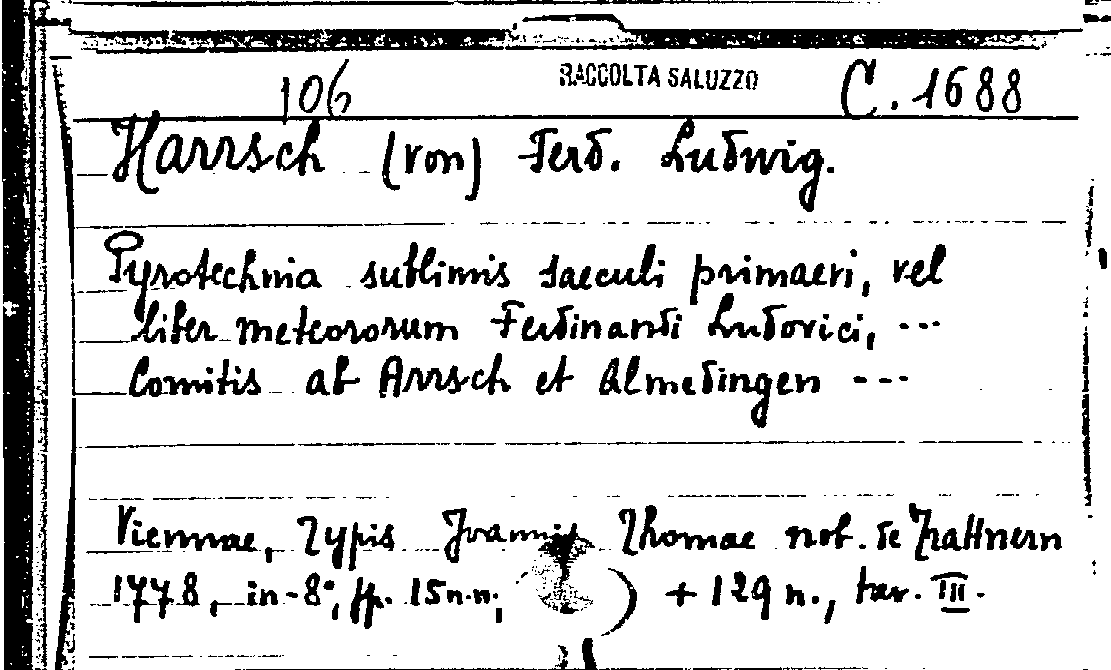 106 RACCOLTA SALUZZO C. 1688
Harrsch (von) Ferd. Ludwig.
Pyrotechnia sublimis saeculi primaevi, vel
liber meteororum Ferdinandi Ludovici, ---
Comitis ab Arrsch et Almedingen ---
Viennae, Typis Joannis Thomae nob. de Trattnern
1778, in-8°, pp. 15 n.n., ) + 129 n., tav. III.